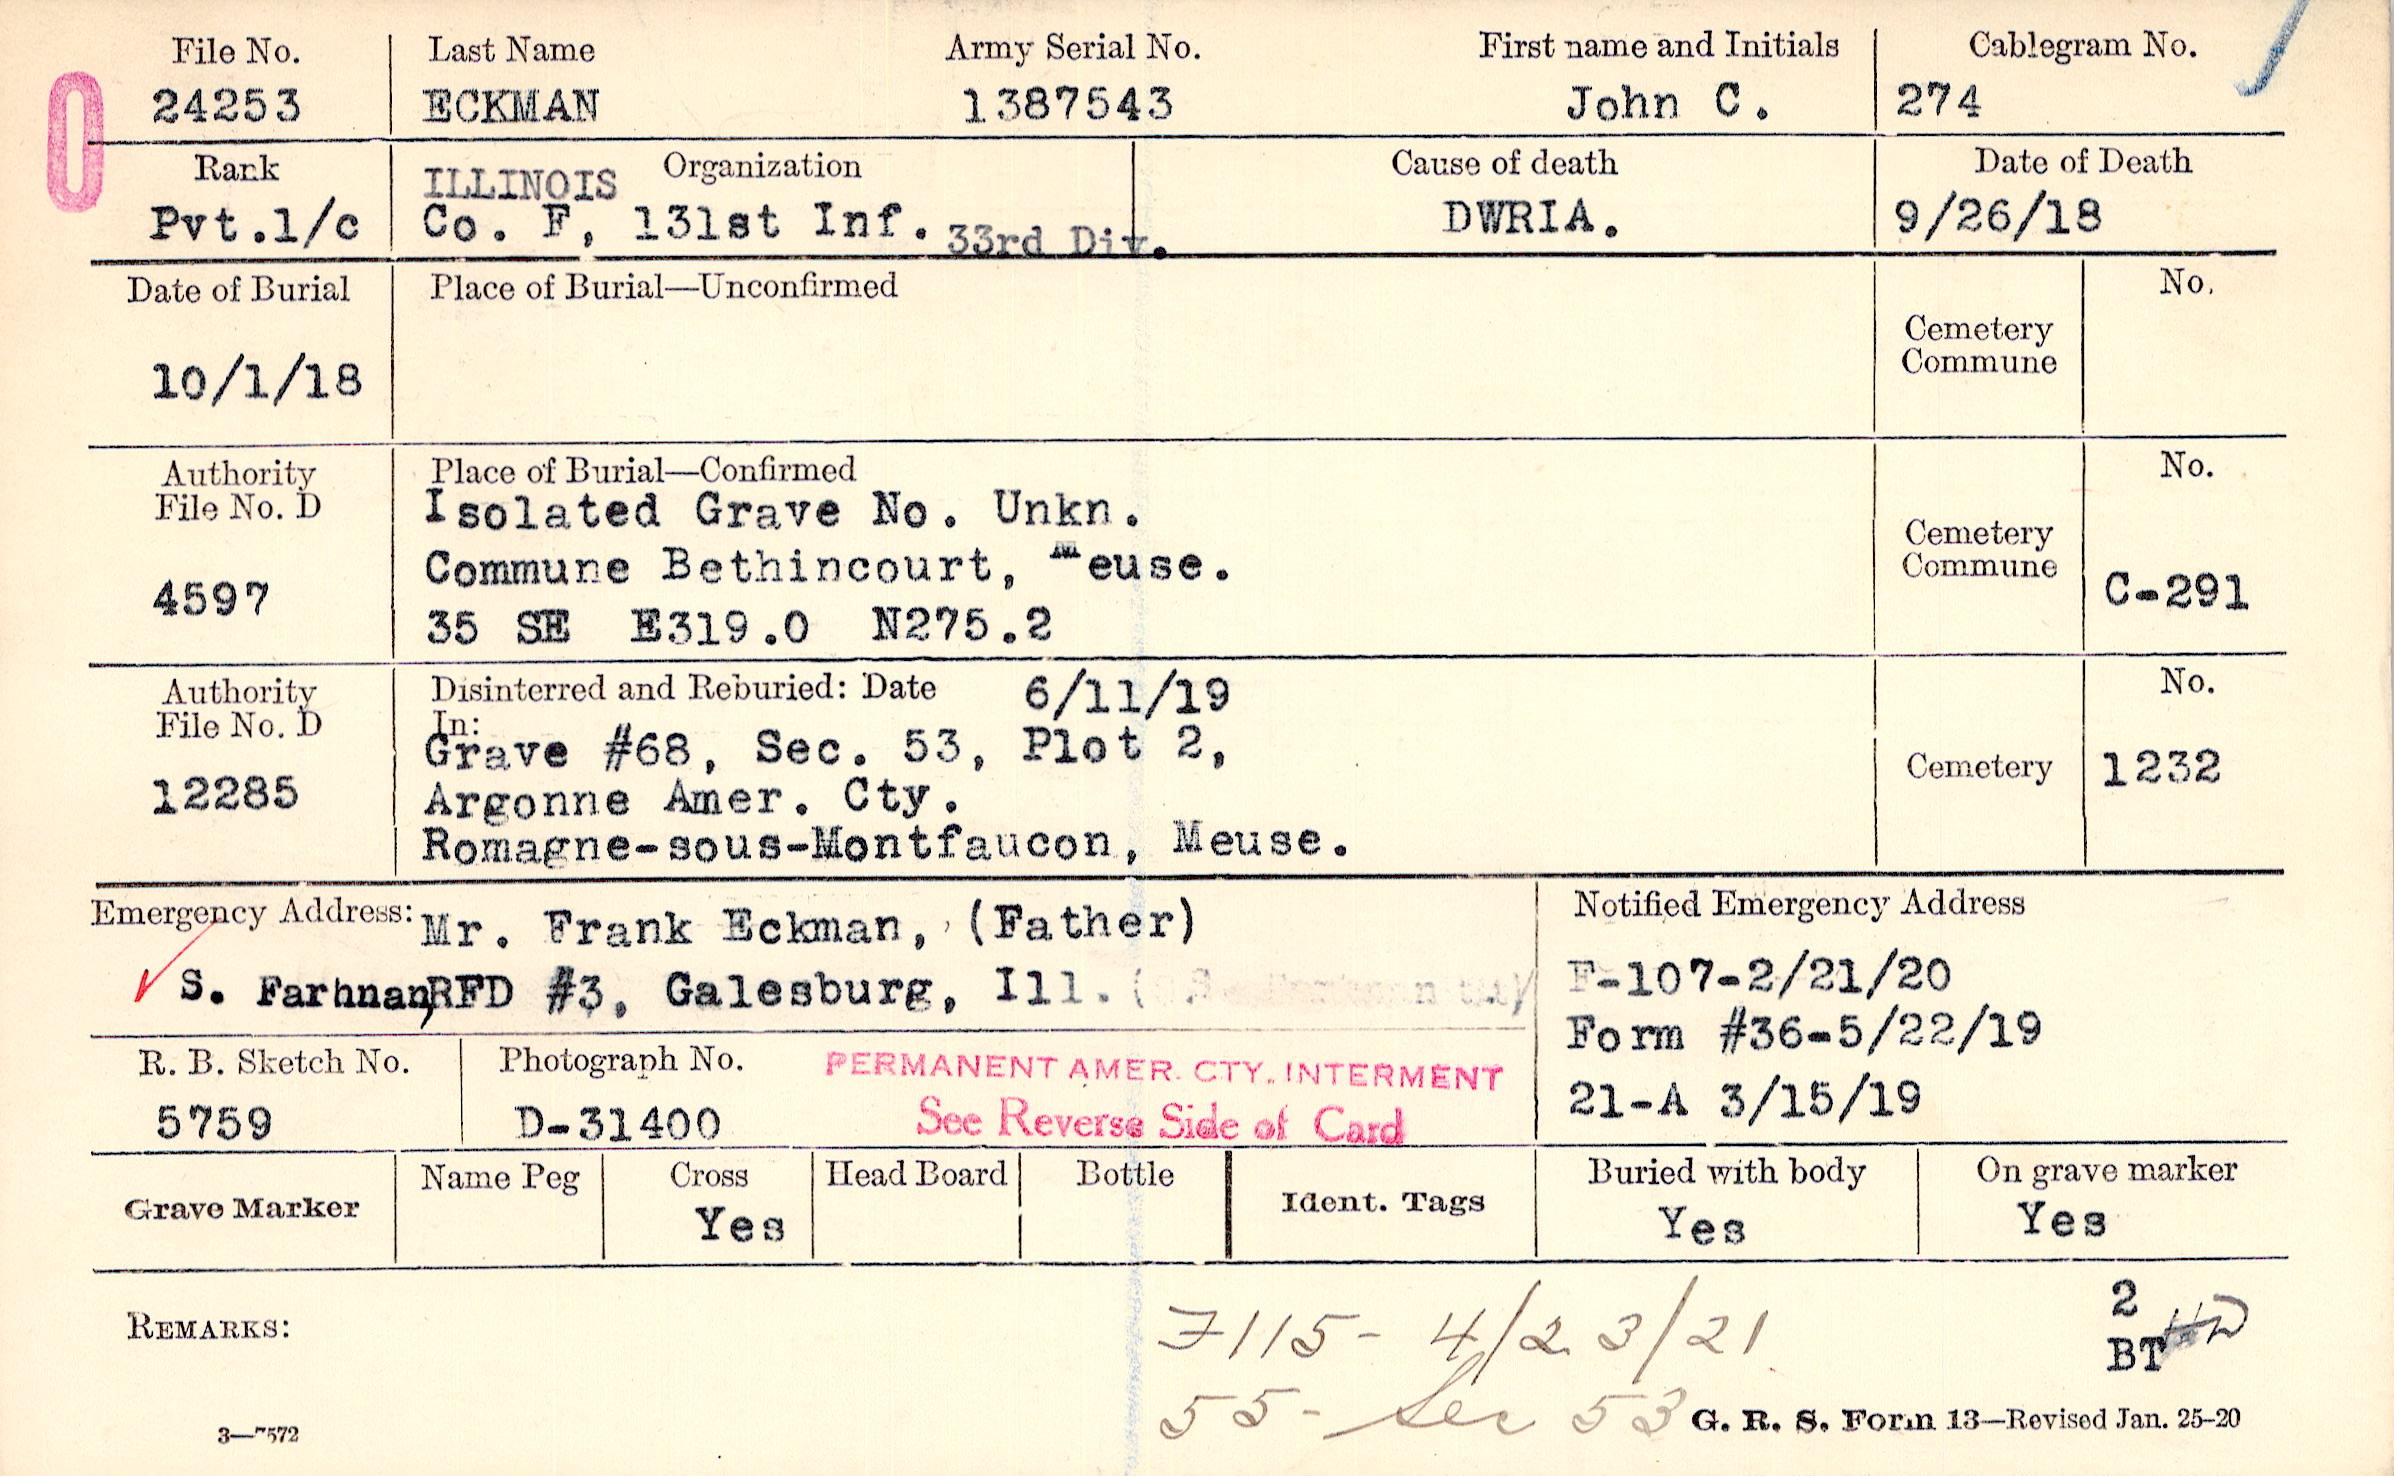 File No. Last Name Army Serial No. First name and Initials Cablegram No.
0 24253 ECKMAN 1387543 John C. 274
Rank ILLINOIS Organization Cause of death Date of Death
Pvt.1/c Co. F, 131st Inf. 33rd Div. DWRIA. 9/26/18
Date of Burial Place of Burial—Unconfirmed No.
Cemetery
Commune
10/1/18
Authority Place of Burial—Confirmed No.
File No. D Isolated Grave No. Unkn.
Cemetery
4597 Commune Bethincourt, Meuse. Commune C-291
35 SE E319.0 N275.2
Authority Disinterred and Reburied: Date 6/11/19 No.
File No. D In:
Grave #68, Sec. 53, Plot 2,
12285 Argonne Amer. Cty. Cemetery 1232
Romagne-sous-Montfaucon, Meuse.
Emergency Address: Mr. Frank Eckman, (Father) Notified Emergency Address
S. Farhnan, RFD #3, Galesburg, Ill. F-107-2/21/20
Form #36-5/22/19
R. B. Sketch No. Photograph No. PERMANENT AMER. CTY. INTERMENT
5759 D-31400 See Reverse Side of Card 21-A 3/15/19
Grave Marker Name Peg Cross Head Board Bottle Ident. Tags Buried with body On grave marker
Yes Yes Yes
REMARKS: 7115- 4/23/21 2
BT
55- Sec 53 G. R. S. Form 13—Revised Jan. 25-20
3—7572